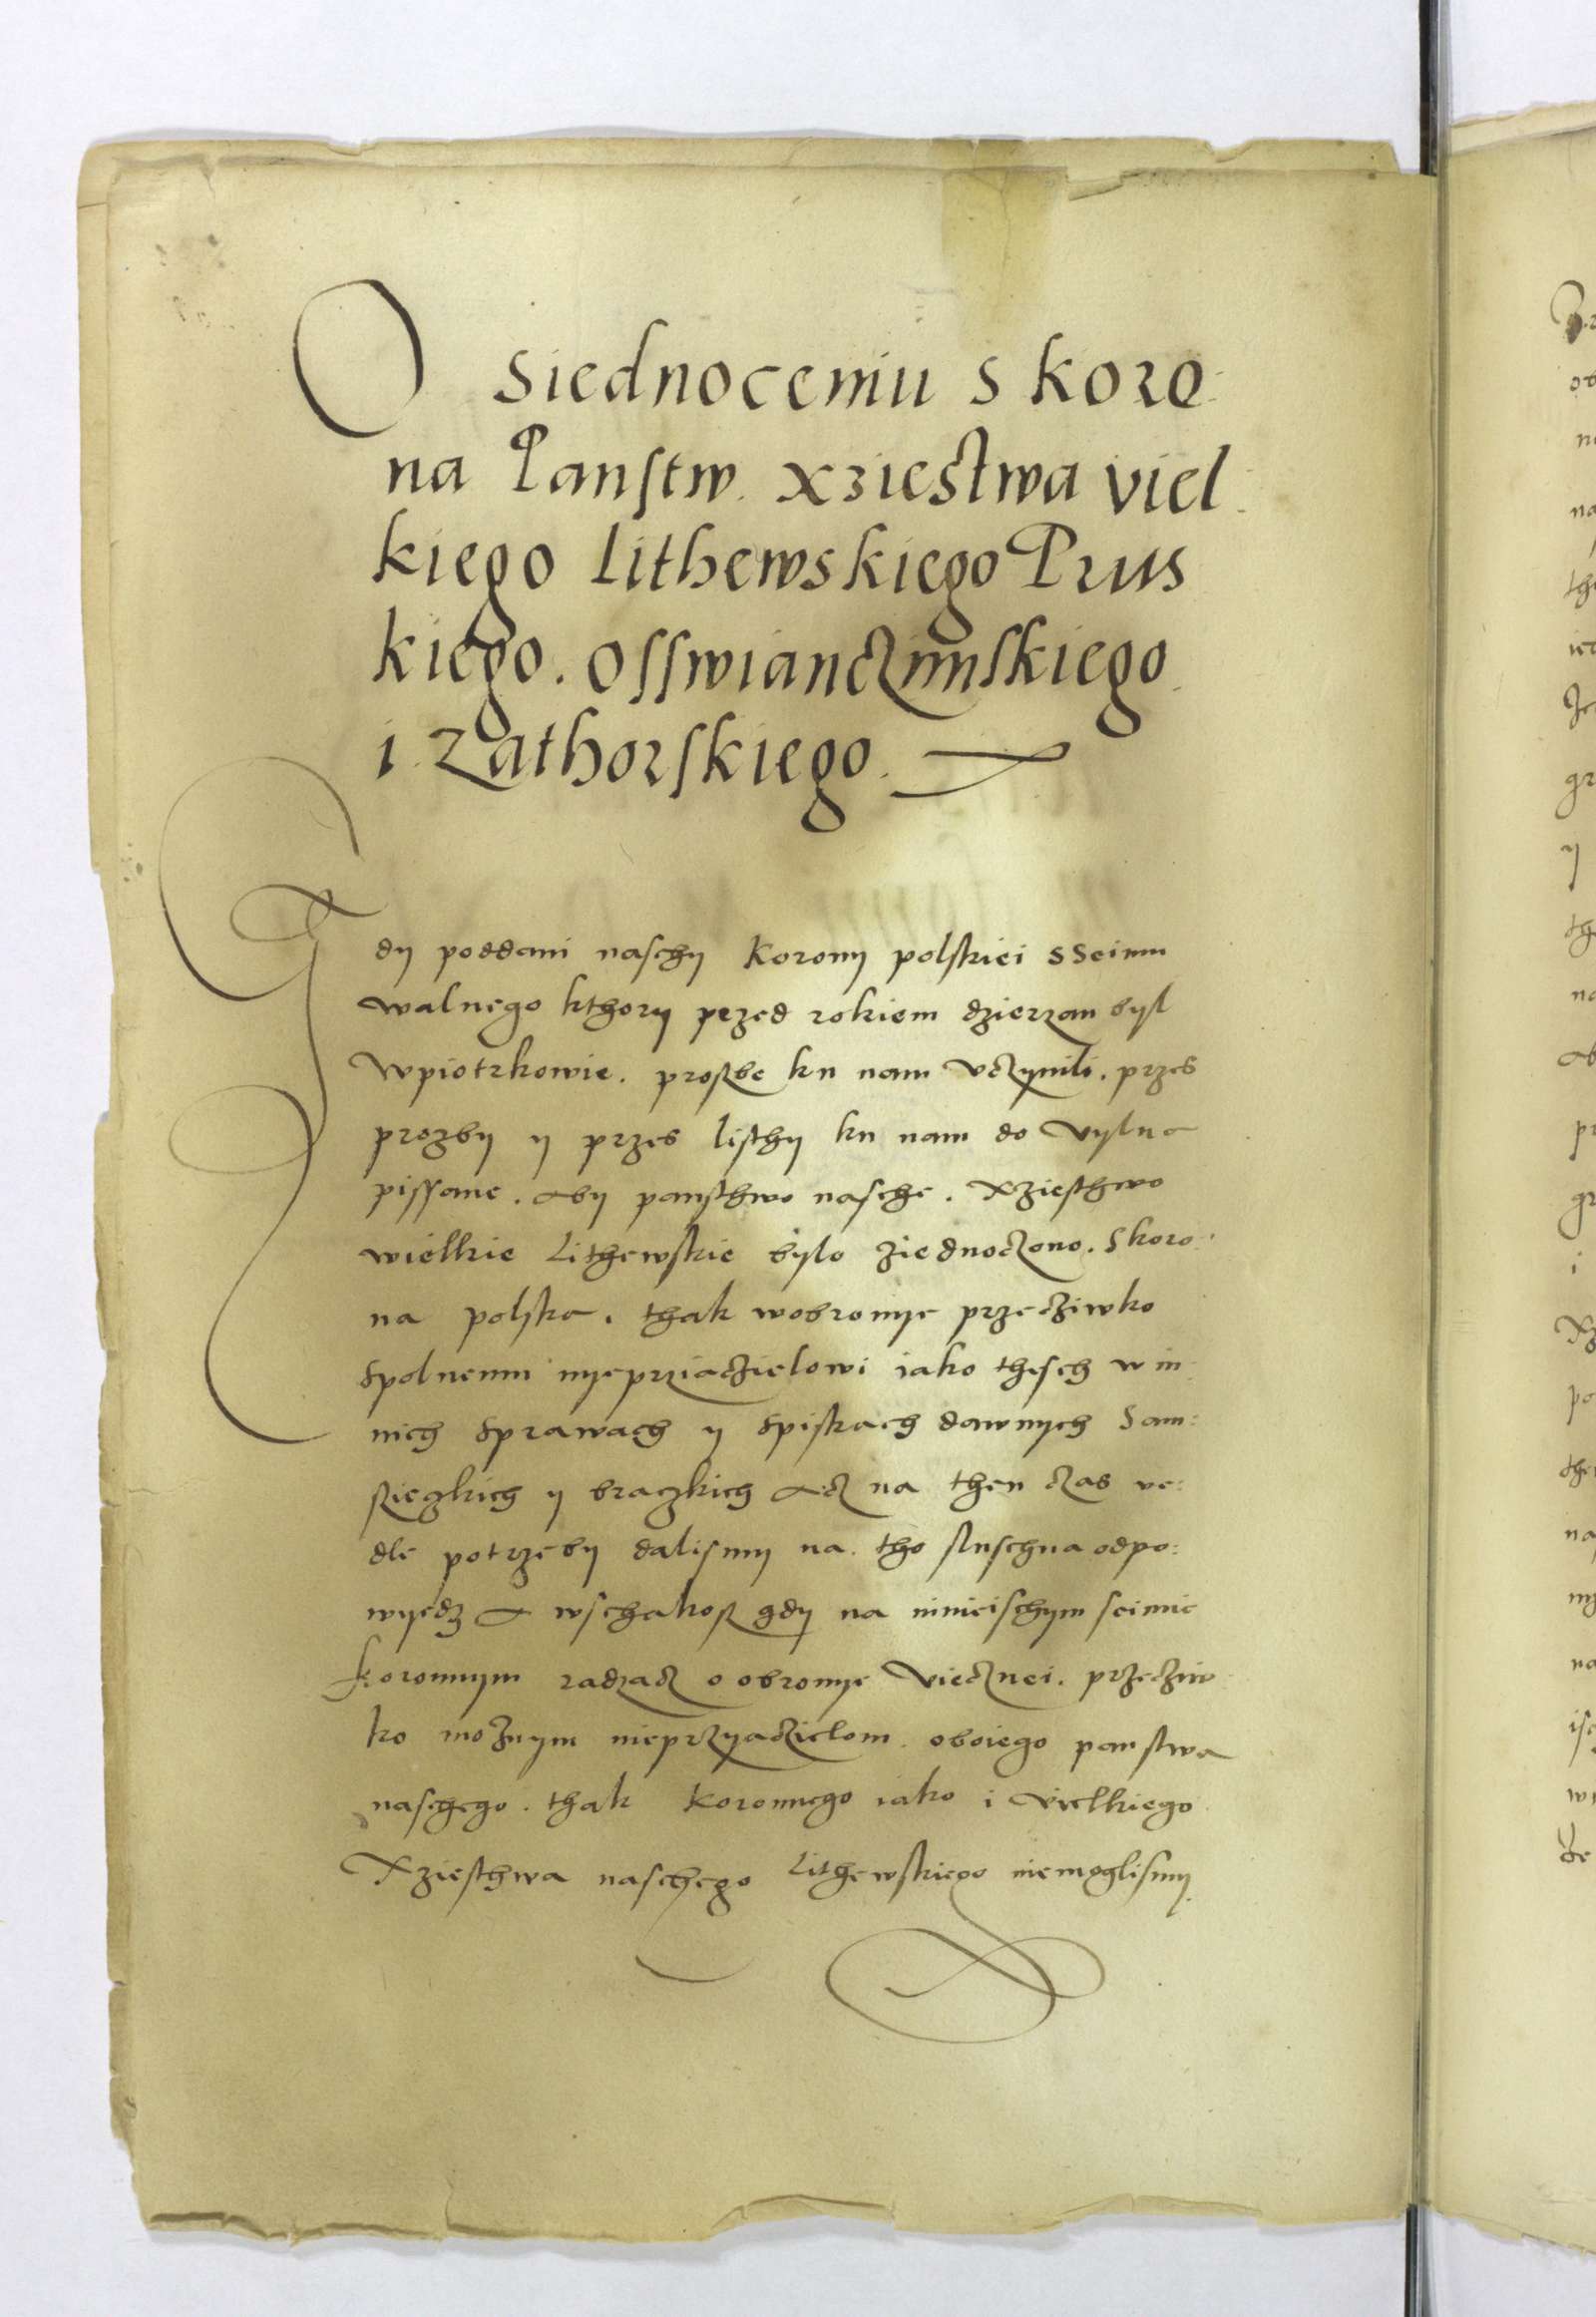 O siednoceniu s koro
na Panstw. xziestwa viel
kiego lithewskiego Prus
kiego. osswianczimskiego
i. zathorskiego.
Gdy poddani naschy Korony polskiei sseimu
walnego kthory przed rokiem dzierzan byl
Wpiotrkowie. proszbe ku nam vczynili. przes
prozby y przes listhy ku nam do Vylna
pissane. aby pansthwo nasche. Xziesthwo
wielkie Lithewskie bylo ziednoczono. Skoro:
na polska. thak wobronye przecziwko
spolnemu nyeprziaczielowi iako thesch w in
nich sprawach y spiskach dawnych Sam:
sziezkich y braczkich acz na then czas ve:
dle potrzeby dalismy na. tho sluschna odpo:
wyedz a wschakosz gdy na ninieischym seimie
koronnym radzacz o obronye vicznei. przecziw
ko moznym nieprzyaczielom. oboiego panstwa
naschego. thak Koronnego iako i vielkiego
Xziesthwa naschego Lithewskiego niemoglismy.